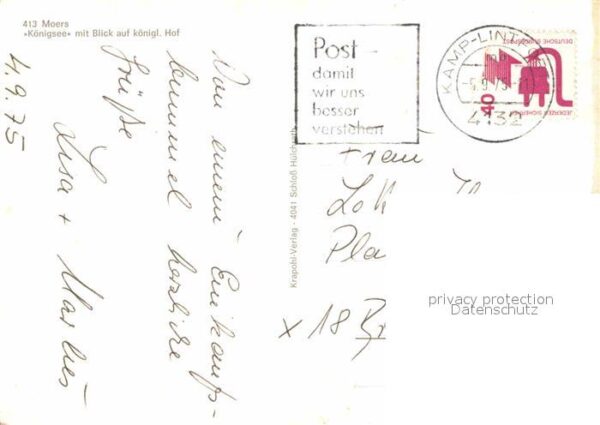 413 Moers
»Königsee« mit Blick auf königl. Hof
4.9.75
Von einem Einkaufs-
bummel herzliche
Grüße
Lisa + Marlies
Krapohl-Verlag - 4041 Schloß Hülchrath
Post -
damit
wir uns
besser
verstehen
KAMP-LINT
-5.9.75
4132
DEUTSCHE BUNDESPOST
40
JEDERZEIT SICHERHEIT
Frau
Pla
x 18
privacy protection
Datenschutz